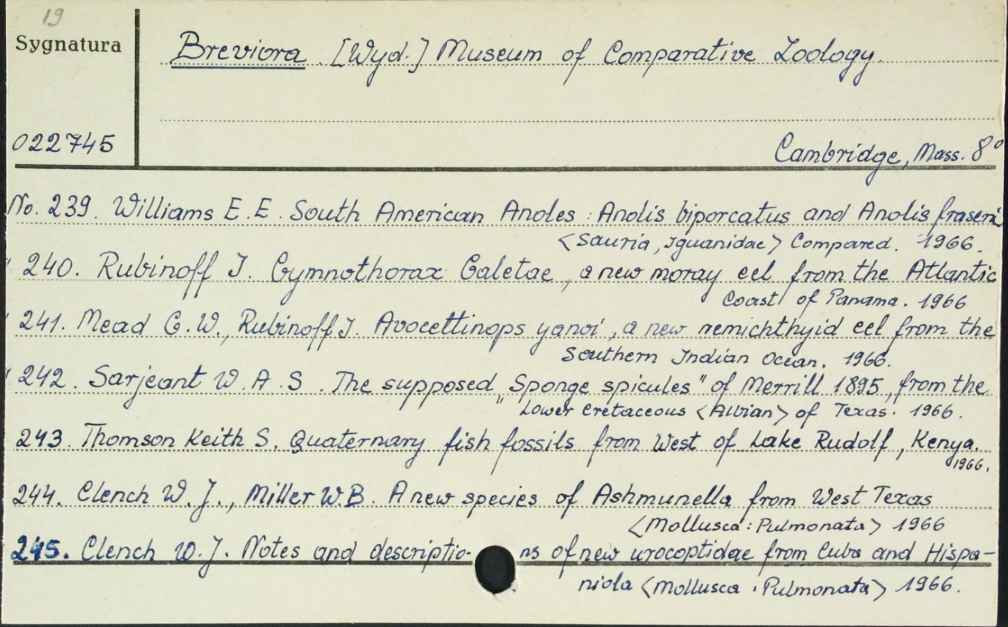 19
Sygnatura
Breviora. [Wyd.] Museum of Comparative Zoology.
022745
Cambridge, Mass. 8°
No. 239. Williams E.E. South American Anoles : Anolis biporcatus and Anolis fraseri
<Sauria, Iguanidae> Compared. 1966.
" 240. Rubinoff I. Gymnothorax Galetae, a new moray eel from the Atlantic
Coast of Panama. 1966
" 241. Mead G.W., Rubinoff I. Avocettinops yanoi, a new nemichthyid eel from the
Southern Indian Ocean. 1966.
" 242. Sarjeant W.A.S. The supposed „Sponge spicules" of Merrill 1895, from the
Lower Cretaceous <Albian> of Texas. 1966.
243. Thomson Keith S. Quaternary fish fossils from West of Lake Rudolf, Kenya.
1966.
244. Clench W.J., Miller W.B. A new species of Ashmunella from West Texas
<Mollusca : Pulmonata> 1966
245. Clench W.J. Notes and descriptio- ns of new urocoptidae from Cuba and Hispa-
niola <Mollusca : Pulmonata> 1966.